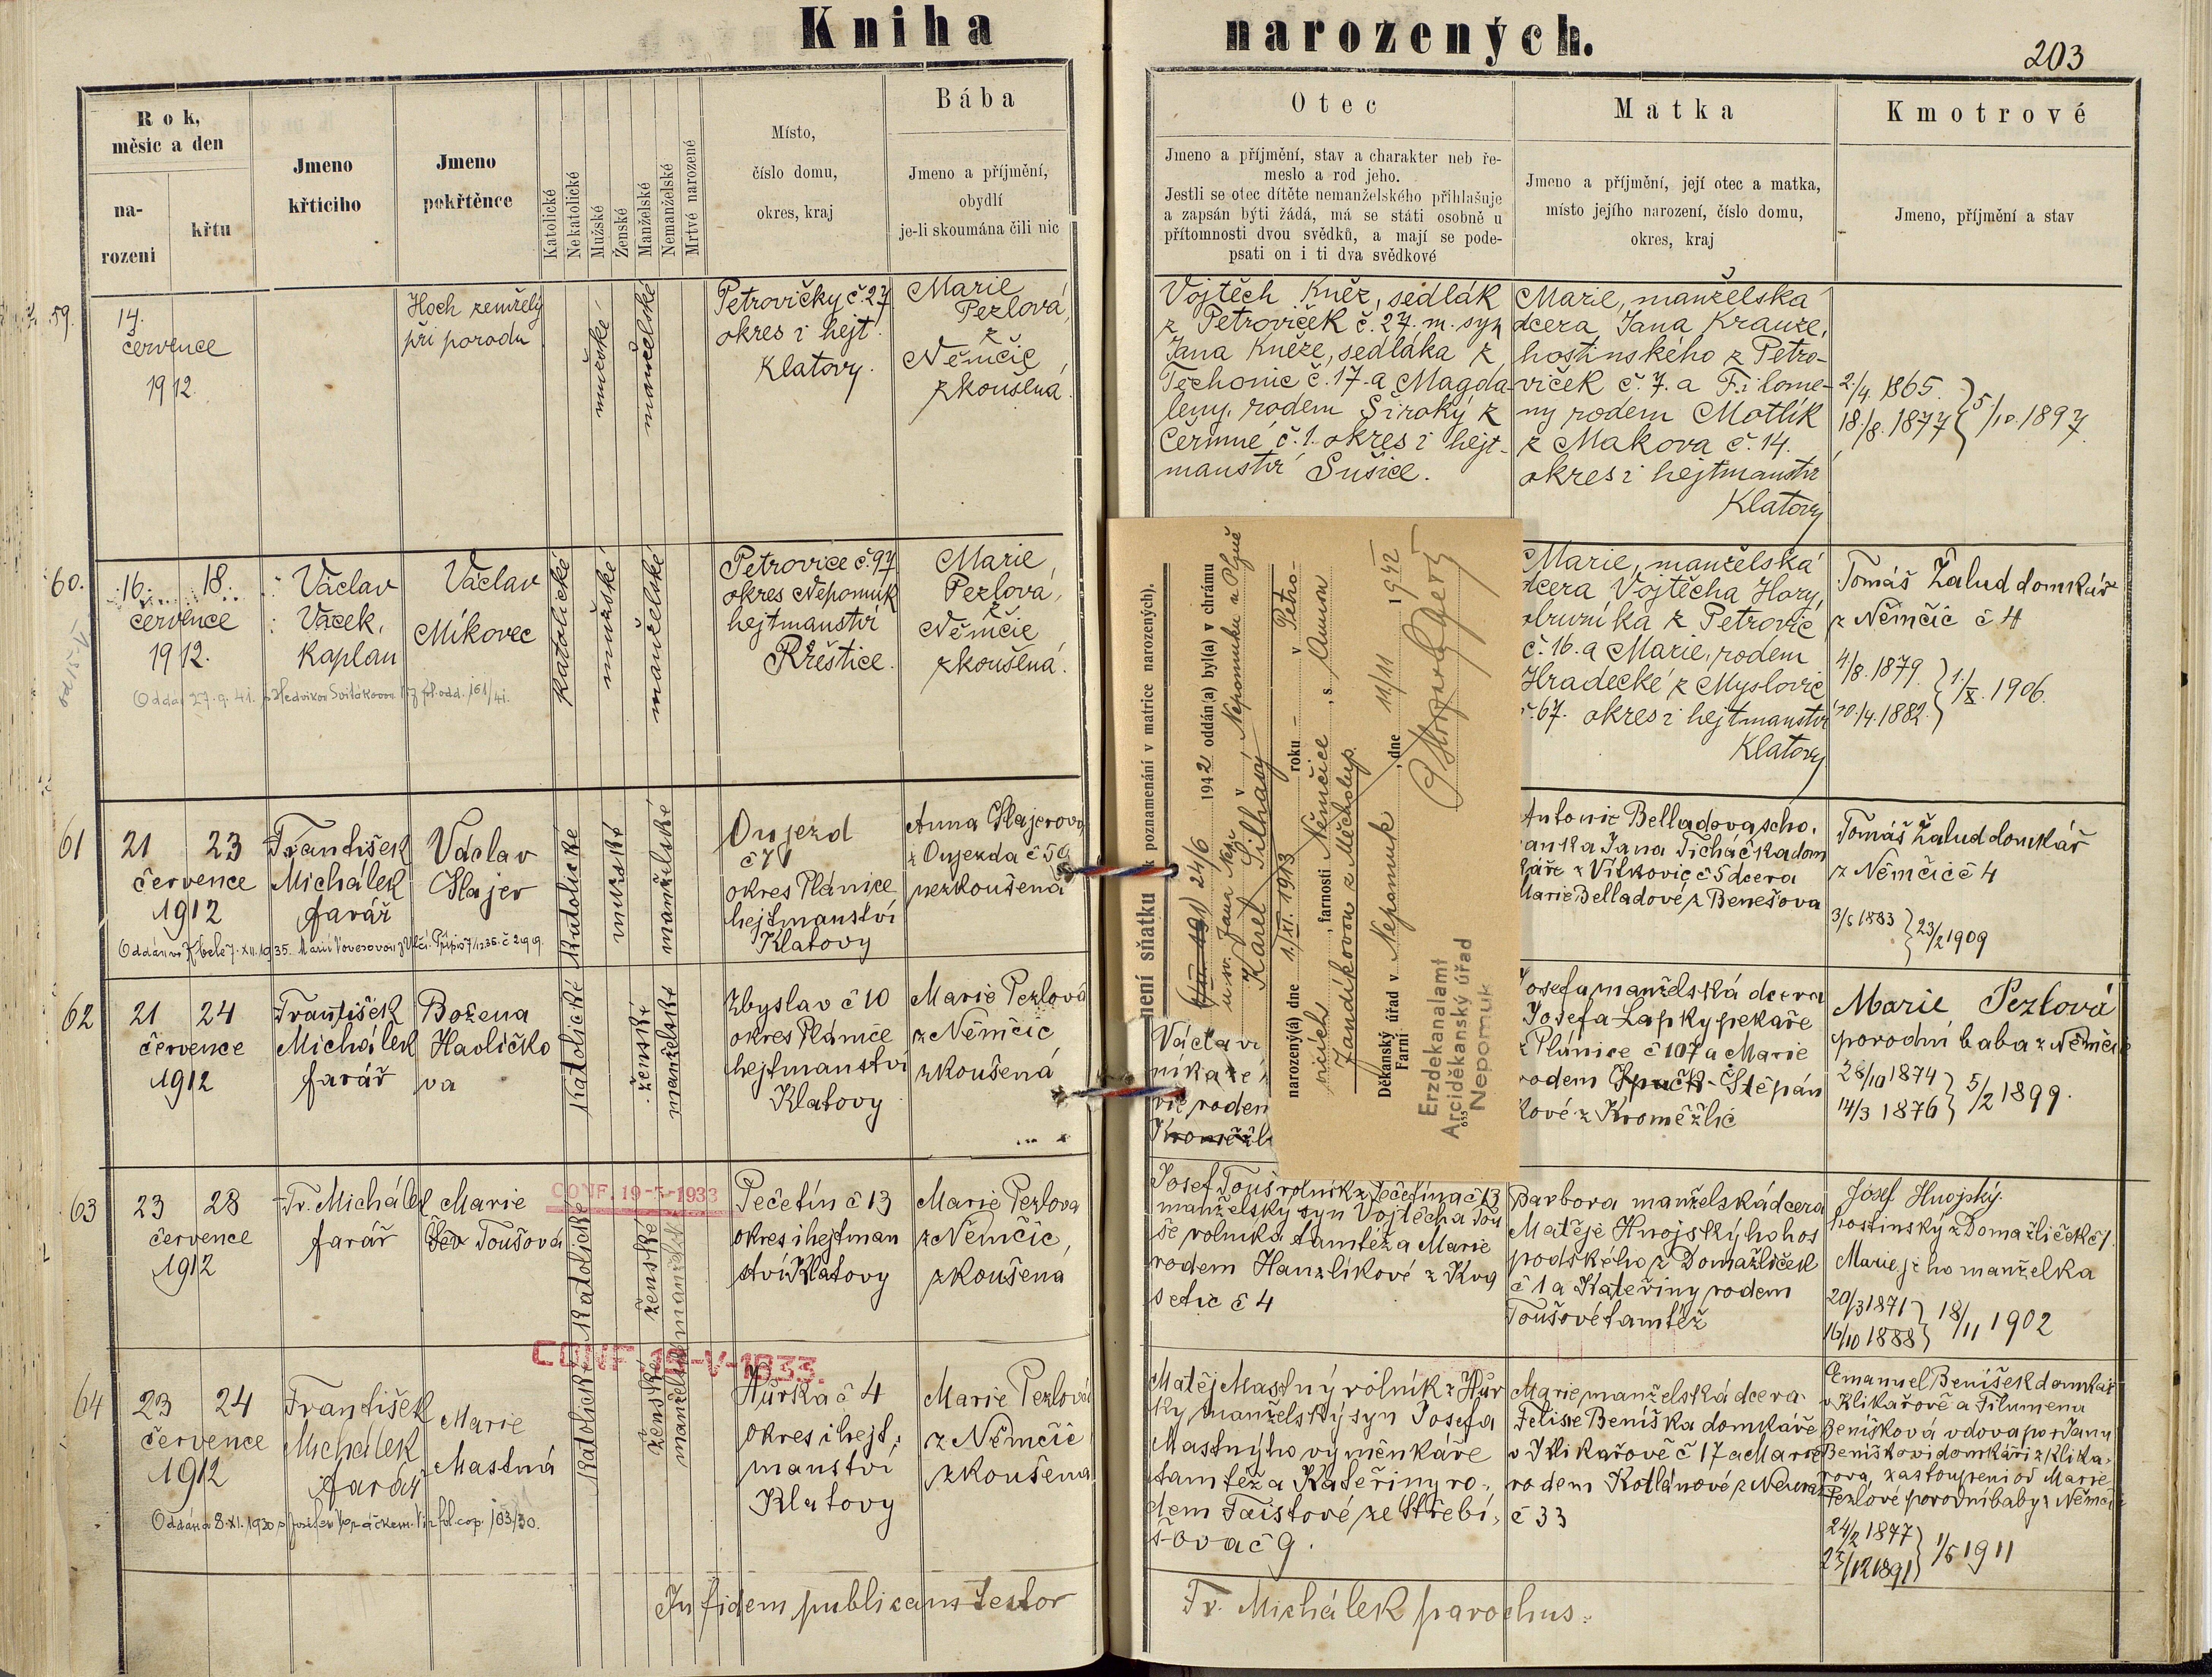 Kniha narozených.
203
Rok, měsíc a den
na-
rození
křtu
Jmeno
křticiho
Jmeno
pokřtěnce
Katolické
Nekatolické
Mužské
Ženské
Manželské
Nemanželské
Mrtvé narozené
Místo,
číslo domu,
okres, kraj
Bába
Jmeno a příjmění,
obydlí
je-li skoumána čili nic
Otec
Jmeno a příjmění, stav a charakter neb ře-
meslo a rod jeho.
Jestli se otec dítěte nemanželského přihlašuje
a zapsán býti žádá, má se státi osobně u
přítomnosti dvou svědků, a mají se pode-
psati on i ti dva svědkové
Matka
Jmeno a příjmění, její otec a matka,
místo jejího narození, číslo domu,
okres, kraj
Kmotrové
Jmeno, příjmění a stav
59.
14.
července
1912.
Hoch zemřelý
při porodu
mužské
manželské
Petrovičky č. 27
okres i hejt.
Klatovy.
Marie
Pezlová,
z
Němčic
zkoušená.
Vojtěch Kněz, sedlák
z Petroviček č. 27. m. syn
Jana Kněze, sedláka z
Těchonic č. 17. a Magda
leny, rodem Široký z
Čermné, č. 1. okres i hejt-
manství Sušice.
Marie, manželská
dcera Jana Krauze,
hostinského z Petro-
viček č. 7. a Filome-
ny rodem Motlík
z Makova č. 14.
okres i hejtmanství
Klatovy
2./4. 1865.
18./8. 1877
5/10. 1897.
60.
16. 18.
července
1912.
Václav
Vacek,
kaplan
Václav
Míkovec
katolické
mužské
manželské
Petrovice č. 97
okres Nepomuk
hejtmanství
Přeštice.
Marie,
Pezlová,
z
Němčic
zkoušená.
Oddán 27. 9. 41. s Hedvikou Svitákovou. Viz fol. odd. 161/41.
Marie, manželská
dcera Vojtěcha Hory,
obruníka z Petrovic
č. 16. a Marie, rodem
Hradecké z Myslovic
č. 67. okres i hejtmanství
Klatovy
Tomáš Žalud domkář
z Němčic č 4
4/8. 1879.
10./4. 1882.
1./X. 1906.
61
21 23
července
1912
František
Michálek
farář
Václav
Hajer
Katolické
mužské
manželské
Oujezd
č 71
okres Plánice
hejtmanství
Klatovy
Anna Hajerová
z Oujezda č 50
nezkoušená
Antonie Belladova scho-
vanka Jana Ticháčka dom
káře z Vítkovic č 5 dcera
Marie Belladové z Benešova
Tomáš Žalud domkář
z Němčic č 4
3/5 1883
23/2 1909
62
21 24
července
1912
František
Michálek
farář
Božena
Havlíčko
va
Katolické
ženské
manželské
Zbyslav č 10
okres Plánice
hejtmanství
Klatovy
Marie Pezlová
z Němčic
zkoušená
Václav
vic rodem
Josefa manželská dcera
Josefa Lapky pekaře
z Plánice č 107 a Marie
rodem Štěpán
kové z Kroměžlic
Marie Pezlová
porodní baba z Němčic
28/10 1874
14/3 1876
5/2 1899.
63
23 28
července
1912
Fr. Michálek
farář
Marie
Toušová
CONF. 19-5-1933
Katolické
ženské
manželské
Pečetín č 13
okres i hejtman
ství Klatovy
Marie Pezlova
z Němčic,
zkoušena
Josef Touš rolník z Pečetína č 13
manželský syn Vojtěcha Tou
še rolníka tamtéž a Marie
rodem Hanzlíkové z Kva
setic č 4
Barbora manželská dcera
Matěje Hnojskýho hos
podského z Domažliček
č 1 a Kateřiny rodem
Toušové tamtéž
Josef Hnojský
hostinský z Domažliček č 1.
Marie jeho manželka
20/3 1871
16/10 1888
18/11 1902
64
23 24
července
1912
František
Michálek
farář
Marie
Mastná
CONF. 19-V-1933.
Katolické
ženské
manželské
Hůrka č 4
okres i hejt.
manství
Klatovy
Marie Pezlová
z Němčic
zkoušena
Matěj Mastný rolník z Hůr
ky manželský syn Josefa
Mastnýho výměnkáře
tamtéž a Kateřiny ro-
dem Faistové ze Střebí-
šova č 9.
Marie manželská dcera
Felixe Beníška domkáře
v Klikařově č 17 a Marie
rodem Kotlánové z
č 33
Emanuel Benišek domkář
v Klikařově a Filumena
Benišková vdova po Janu
Beniškovi domkáři z Klika-
rova, zastoupeni od Marie
Pezlové porodní baby z Němčic
24/2 1877
25/12 1891
1/5 1911
In fidem publicam testor
Fr. Michálek parochus.
k poznamenání v matrice narozených).
není sňatku
24/6 1942 oddán(a) byl(a) v chrámu
u sv. Jana Nep. v Nepomuku u Plzně
Karel Silhavý
narozený(á) dne 1./XI. 1913 roku - v Petro-
vicích, farnosti Němčice, s Annou
Jandíkovou z Měcholup.
Děkanský
Farní úřad v Nepomuk, dne 11/11 1942
Erzdekanalamt
Arciděkanský úřad
655 Nepomuk